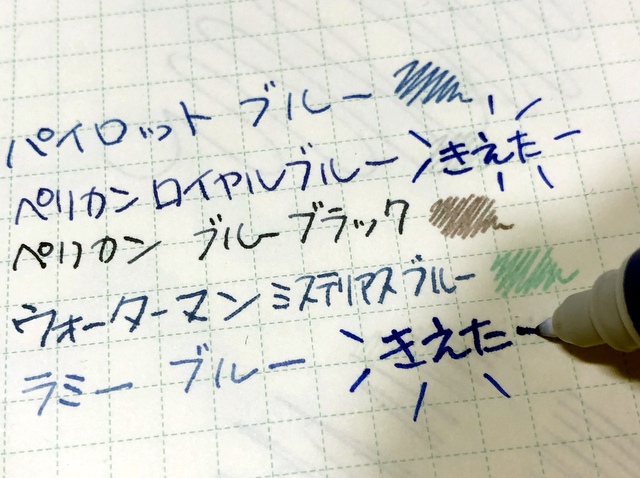 パイロット ブルー
ペリカン ロイヤルブルー きえた
ペリカン ブルーブラック
ウォーターマン ミステリアスブルー
ラミー ブルー きえた